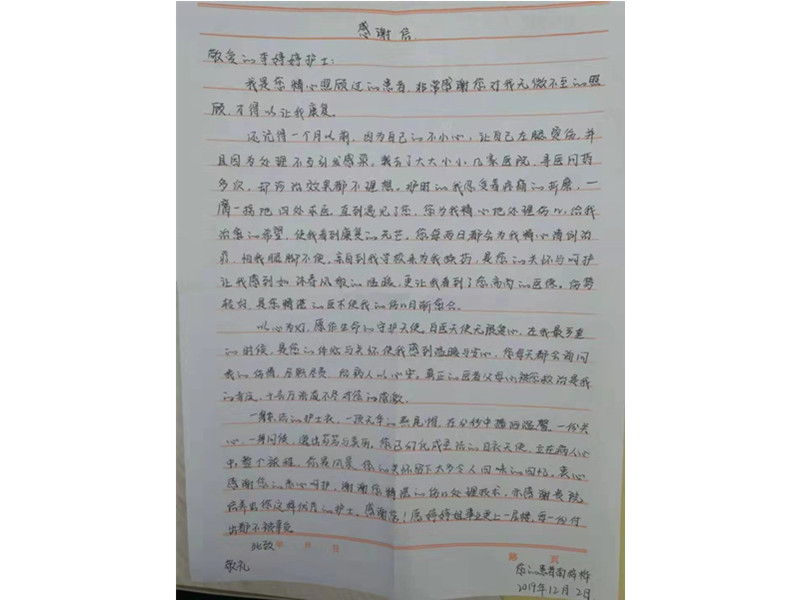 感谢信
敬爱的李婷婷护士:
我是您精心照顾过的患者,非常感谢您对我无微不至的照
顾,才得以让我康复。
还记得一个月以前,因为自己的不小心,让自己左腿烫伤,并
且因为处理不当引发感染。我去了大大小小几家医院,寻医问药
多次,却治效果都不理想。那时的我忍受着疼痛的折磨,一
瘸一拐地四处求医,直到遇见了您,您为我精心地处理伤口,给我
治愈的希望,使我看到康复的光芒。您每两日都会为我精心清创治
怕我腿脚不便,亲自到我学校来为我换药,是您的关怀与呵护
让我感到如沐春风般的温暖,更让我看到了您高尚的医德。
是您精湛的医术使我的伤口日渐愈合。
以心为灯,愿作生命的守护天使,白医天使无限爱心,在我最
的时候,是您的与关怀使我感到温暖与安心,您每天都会询问
我的伤情,尽职尽责,给病人以心安。真正的医者父母心
的千言万语道不尽对您的感激。
一身纯洁的护士衣,一顶的燕尾帽,在分秒中播洒温馨。一份关
心,一声问候,您已幻化成圣洁的白衣天使,立在病人心
中,整个旅程,你是风景。你的关怀留下太多令人回味的回忆。衷心
感谢您的悉心呵护,谢谢您精湛的伤口处理技术,亦感谢贵院
培养出你这样优秀的护士。感谢您!愿婷婷姐事业更上一层楼,每一份付
出都不被辜负
此致 年 月 日
第 页
敬礼
您的患者
2019年12月2日